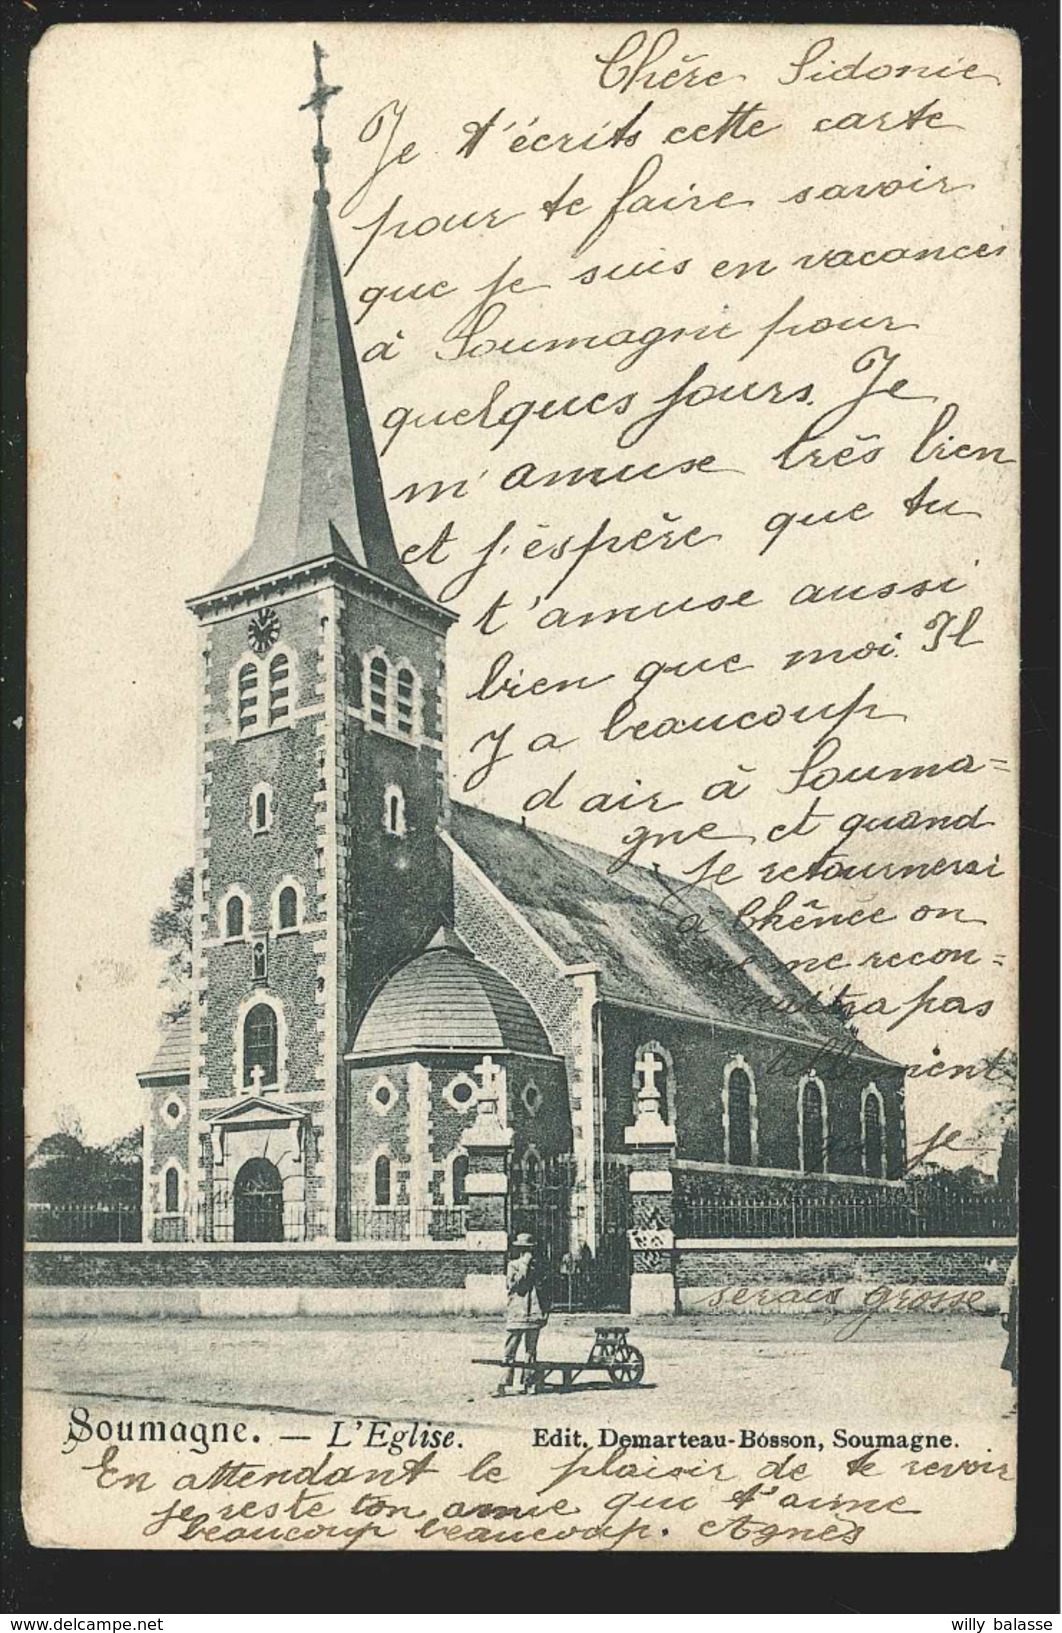 Chère Sidonie
Je t'écrits cette carte
pour te faire savoir
que je suis en vacances
à Soumagne pour
quelques jours. Je
m'amuse très bien
et j'éspère que tu
t'amuse aussi
bien que moi. Il
y a beaucoup
d air à Souma=
gne et quand
je retournerai
à Chênée on
ne me recon=
naîtra pas
tellement
que je
serais grosse
Soumagne. — L'Eglise. Edit. Demarteau-Bosson, Soumagne.
En attendant le plaisir de te revoir
je reste ton amie qui t'aime
beaucoup beaucoup. Agnès
delcampe.net
willy balasse